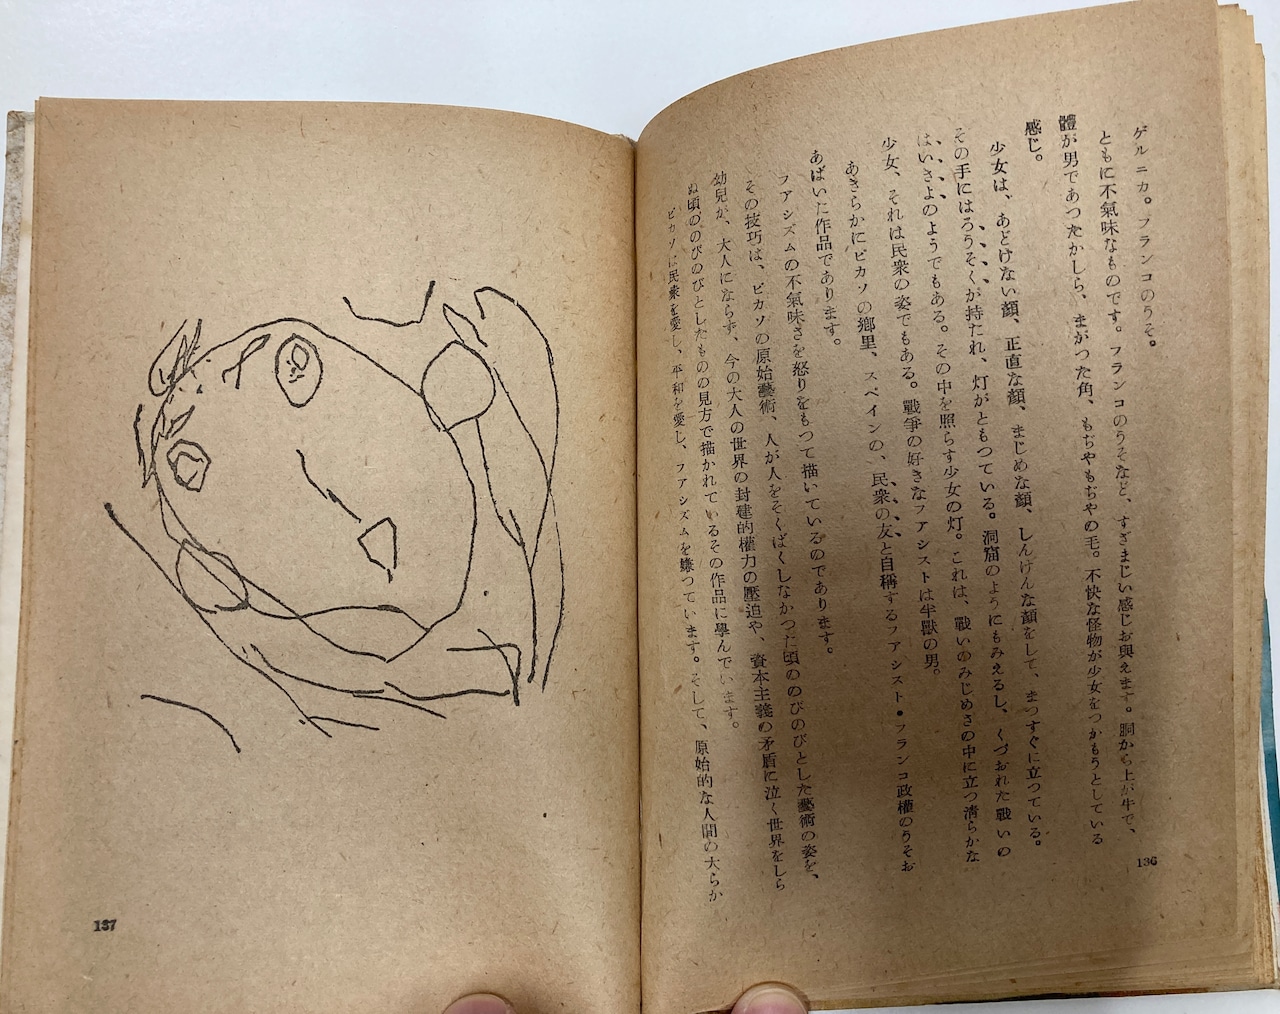 ゲルニカ。フランコのうそ。
ともに不氣味なものです。フランコのうそなど、すざまじい感じお與えます。胴から上が牛で、
體が男であつたかしら、まがつた角、もぢやもぢやの毛。不快な怪物が少女をつかもうとしている
感じ。
少女は、あどけない顏、正直な顏、まじめな顏、しんけんな顏をして、まつすぐに立つている。
その手にはろうそくが持たれ、灯がともつている。洞窟のようにもみえるし、くづおれた戰いの
はいきよのようでもある。その中を照らす少女の灯。これは、戰いのみじめさの中に立つ淸らかな
少女、それは民衆の姿でもある。戰爭の好きなフアシストは半獸の男。
あきらかにピカソの鄕里、スペインの、民衆の友と自稱するフアシスト・フランコ政權のうそお
あばいた作品であります。
フアシズムの不氣味さを怒りをもつて描いているのであります。
その技巧は、ピカソの原始藝術、人が人をそくばくしなかつた頃ののびのびとした藝術の姿を、
幼兒が、大人にならず、今の大人の世界の封建的權力の壓迫や、資本主義の矛盾に泣く世界をしら
ぬ頃ののびのびとしたものの見方で描かれているその作品に學んでいます。
ピカソは民衆を愛し、平和を愛し、フアシズムを嫌つています。そして、原始的な人間の大らか
136
137